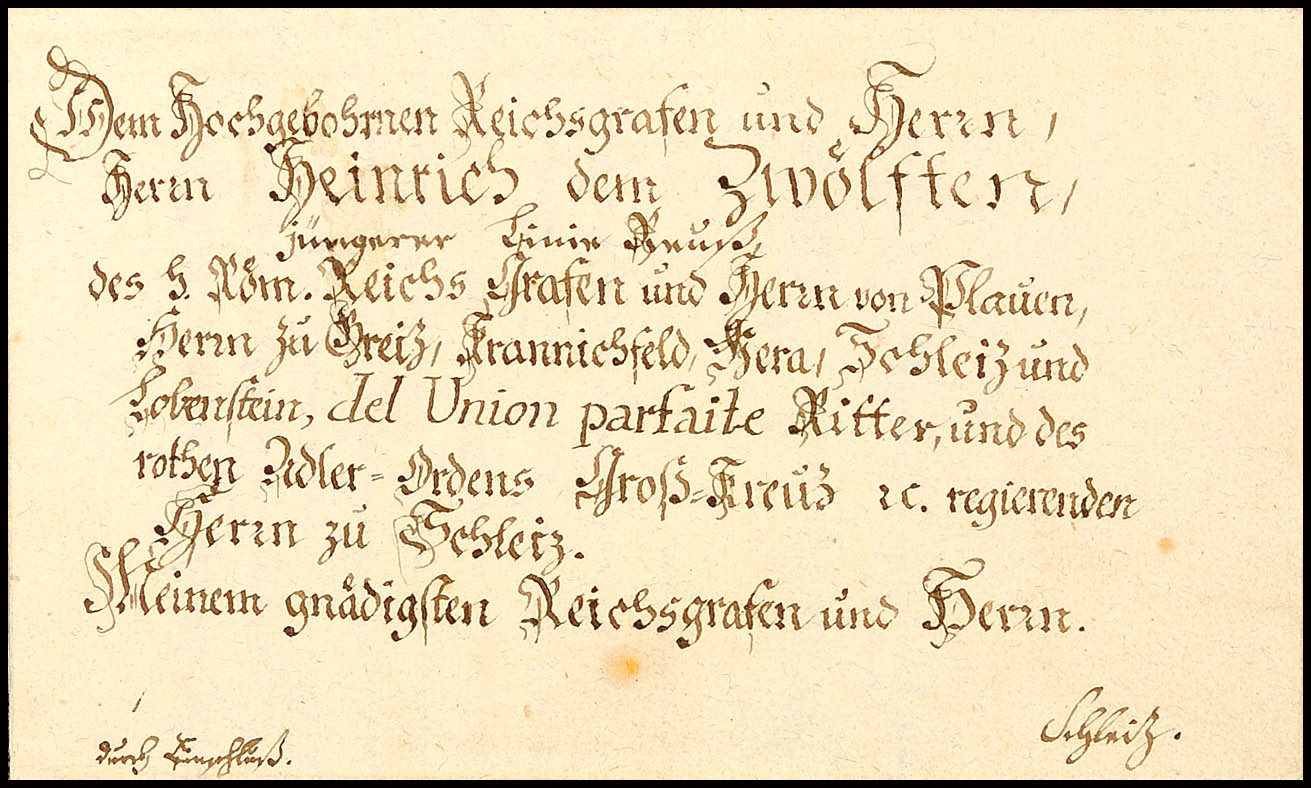 Dem Hochgebohrnen Reichsgrafen und Herrn,
Herrn Heinrich dem Zwölften,
jüngerer Linie Reuß,
des H. Röm. Reichs Grafen und Herrn von Plauen,
Herrn zu Greiz, Krannichfeld, Gera, Schleiz und
Lobenstein, del Union parfaite Ritter, und des
rothen Adler-Ordens Groß-Kreuz ꝛc. regierenden
Herrn zu Schleiz.
Meinem gnädigsten Reichsgrafen und Herrn.
Schleiz.
durch Einschluß.